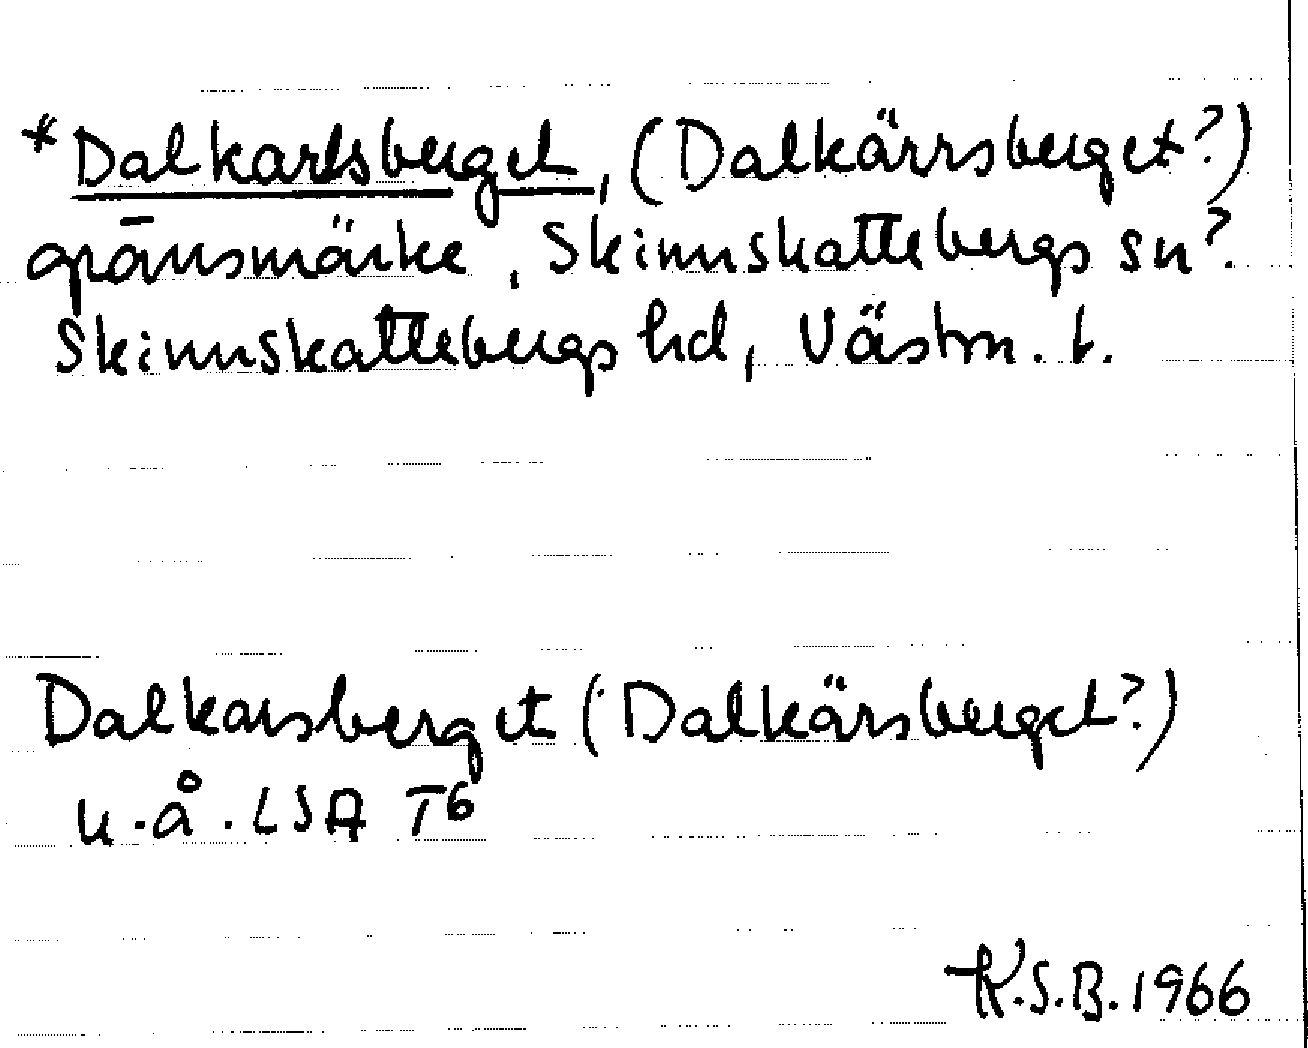 *Dalkarlsberget, (Dalkärrsberget?)
gränsmärke, Skinnskattebergs sn?
Skinnskattebergs hd, Västm. l.
Dalkarsberget (Dalkärsberget?)
u.å. LSA T6
K.S.B. 1966